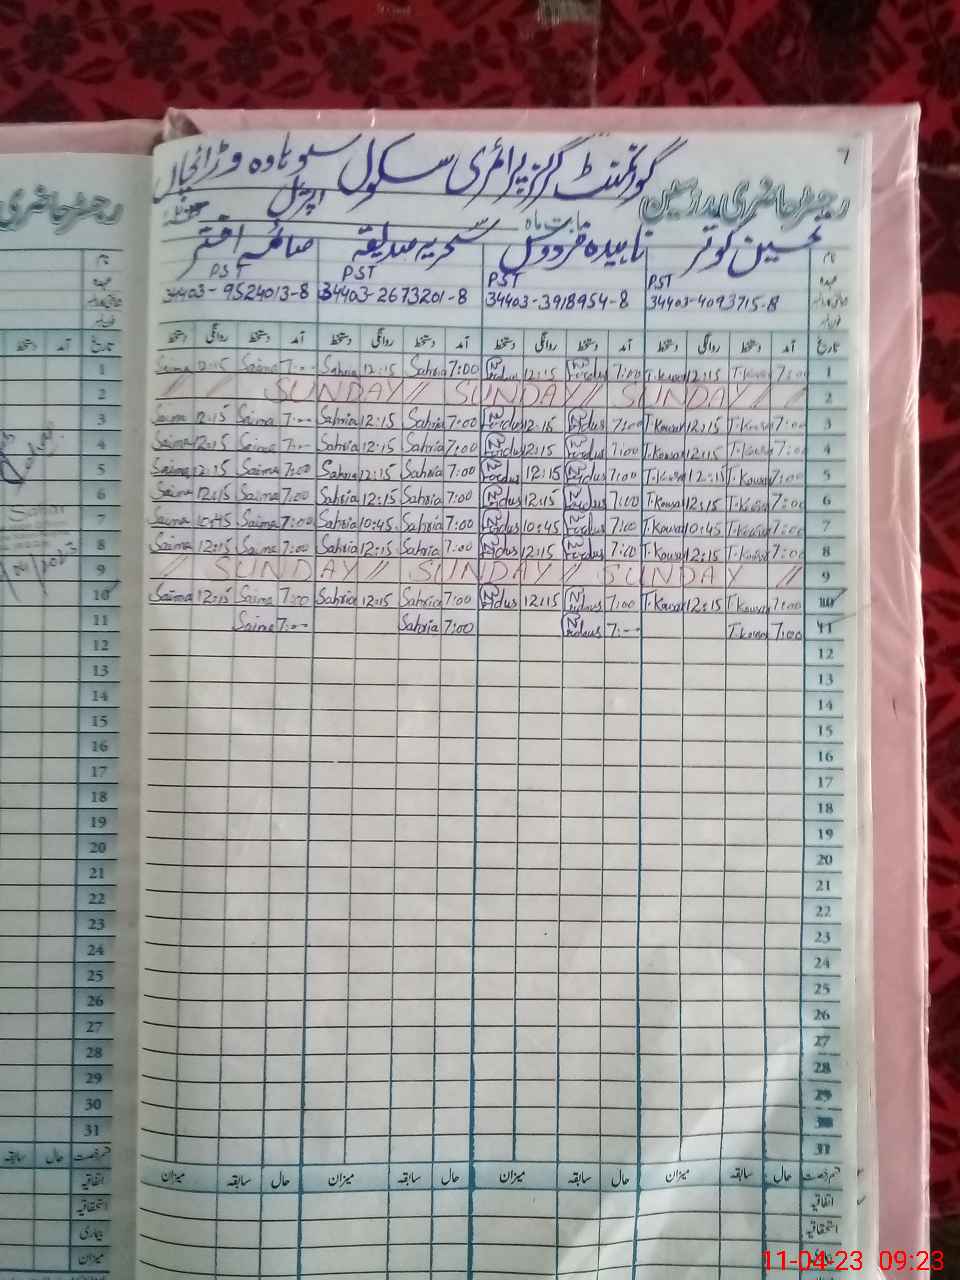 7
گورنمنٹ گرلز پرائمری سکول سوہاوہ وڑائچاں
رجسٹر حاضری مدرسین بابت ماہ اپریل
نام تحسین کوثر ناہیدہ فردوس سحریہ صدیقہ صائمہ اختر
عہدہ PST PST PST PST
34403-4093715-8 34403-3918954-8 34403-2673201-8 34403-9524013-8
تاریخ آمد دستخط روانگی دستخط آمد دستخط روانگی دستخط آمد دستخط روانگی دستخط آمد دستخط روانگی دستخط
1 7:00 T.Kousar 12:15 T.Kousar 7:00 12:15 7:00 Sahria 12:15 Sahria 7:-- Saima 12:15 Saima
2 // SUNDAY // SUNDAY // SUNDAY //
3 7:00 T.Kousar 12:15 T.Kousar 7:00 12:15 7:00 Sahria 12:15 Sahria 7:-- Saima 12:15 Saima
4 7:00 T.Kousar 12:15 T.Kousar 7:00 12:15 7:00 Sahria 12:15 Sahria 7:-- Saima 12:15 Saima
5 7:00 T.Kousar 12:15 T.Kousar 7:00 12:15 7:00 Sahria 12:15 Sahria 7:00 Saima 12:15 Saima
6 7:00 T.Kousar 12:15 T.Kousar 7:00 12:15 7:00 Sahria 12:15 Sahria 7:00 Saima 12:15 Saima
7 7:00 T.Kousar 10:45 T.Kousar 7:00 10:45 7:00 Sahria 10:45 Sahria 7:00 Saima 10:45 Saima
8 7:00 T.Kousar 12:15 T.Kousar 7:00 12:15 7:00 Sahria 12:15 Sahria 7:00 Saima 12:15 Saima
9 // SUNDAY // SUNDAY // SUNDAY //
10 7:00 T.Kousar 12:15 T.Kousar 7:00 12:15 7:00 Sahria 12:15 Sahria 7:00 Saima 12:15 Saima
11 7:00 T.Kousar 7:-- 7:00 Sahria 7:-- Saima
12
13
14
15
16
17
18
19
20
21
22
23
24
25
26
27
28
29
30
31
قسم رخصت حال سابقہ میزان حال سابقہ میزان حال سابقہ میزان حال سابقہ میزان
اتفاقیہ
استحقاقیہ
رجسٹر حاضری
نام
عہدہ
تاریخ آمد دستخط
1
2
3
4
5
6
7
8
9
10
11
12
13
14
15
16
17
18
19
20
21
22
23
24
25
26
27
28
29
30
31
قسم رخصت حال سابقہ
اتفاقیہ
استحقاقیہ
بیماری
میزان
11-04-23 09:23